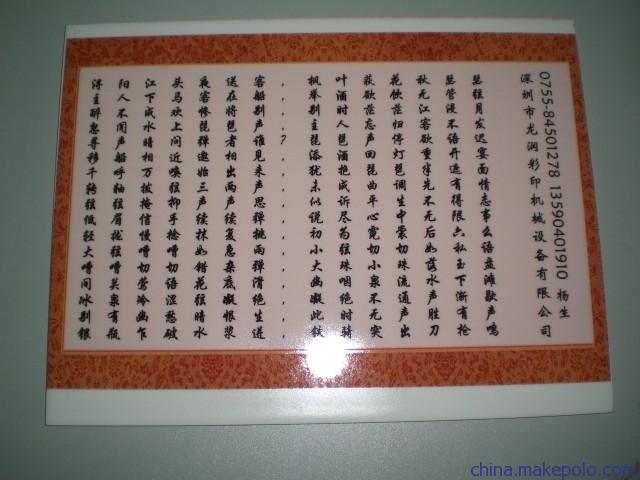 0755-84501278 13590401910 杨生
深圳市龙润彩印机械设备有限公司
瑟弦月发迟宴面情志事么语盘滩歇声鸣
瑟管浸不语开遮有得限六私玉下渐有枪
秋无江客欲重半先不无后如落水声胜刀
花饮茫归停灯琶调生中裳切珠流通声出
荻欲茫忘声回琵曲平心霓切小泉不无突
叶酒时人琶酒抱成诉尽为弦珠咽绝时骑
枫举别主琵添犹未似说初小大幽凝此铁
，，，，?，，，，，，，，，，，，
客船别声谁见来声思弹挑雨弹滑绝生迸
送在将琶者相出两声续复急杂底凝恨浆
夜客惨琵弹邀始三声续抹如错花弦暗水
头马欢上问近唤弦抑手捻嘈切语涩愁破
江下成水暗相万拨掩信慢嘈切莺冷幽乍
阳人不闻声船呼轴弦眉拢弦嘈关泉有瓶
浔主醉忽寻移千转弦低轻大嘈间冰别银
china.makepolo.com